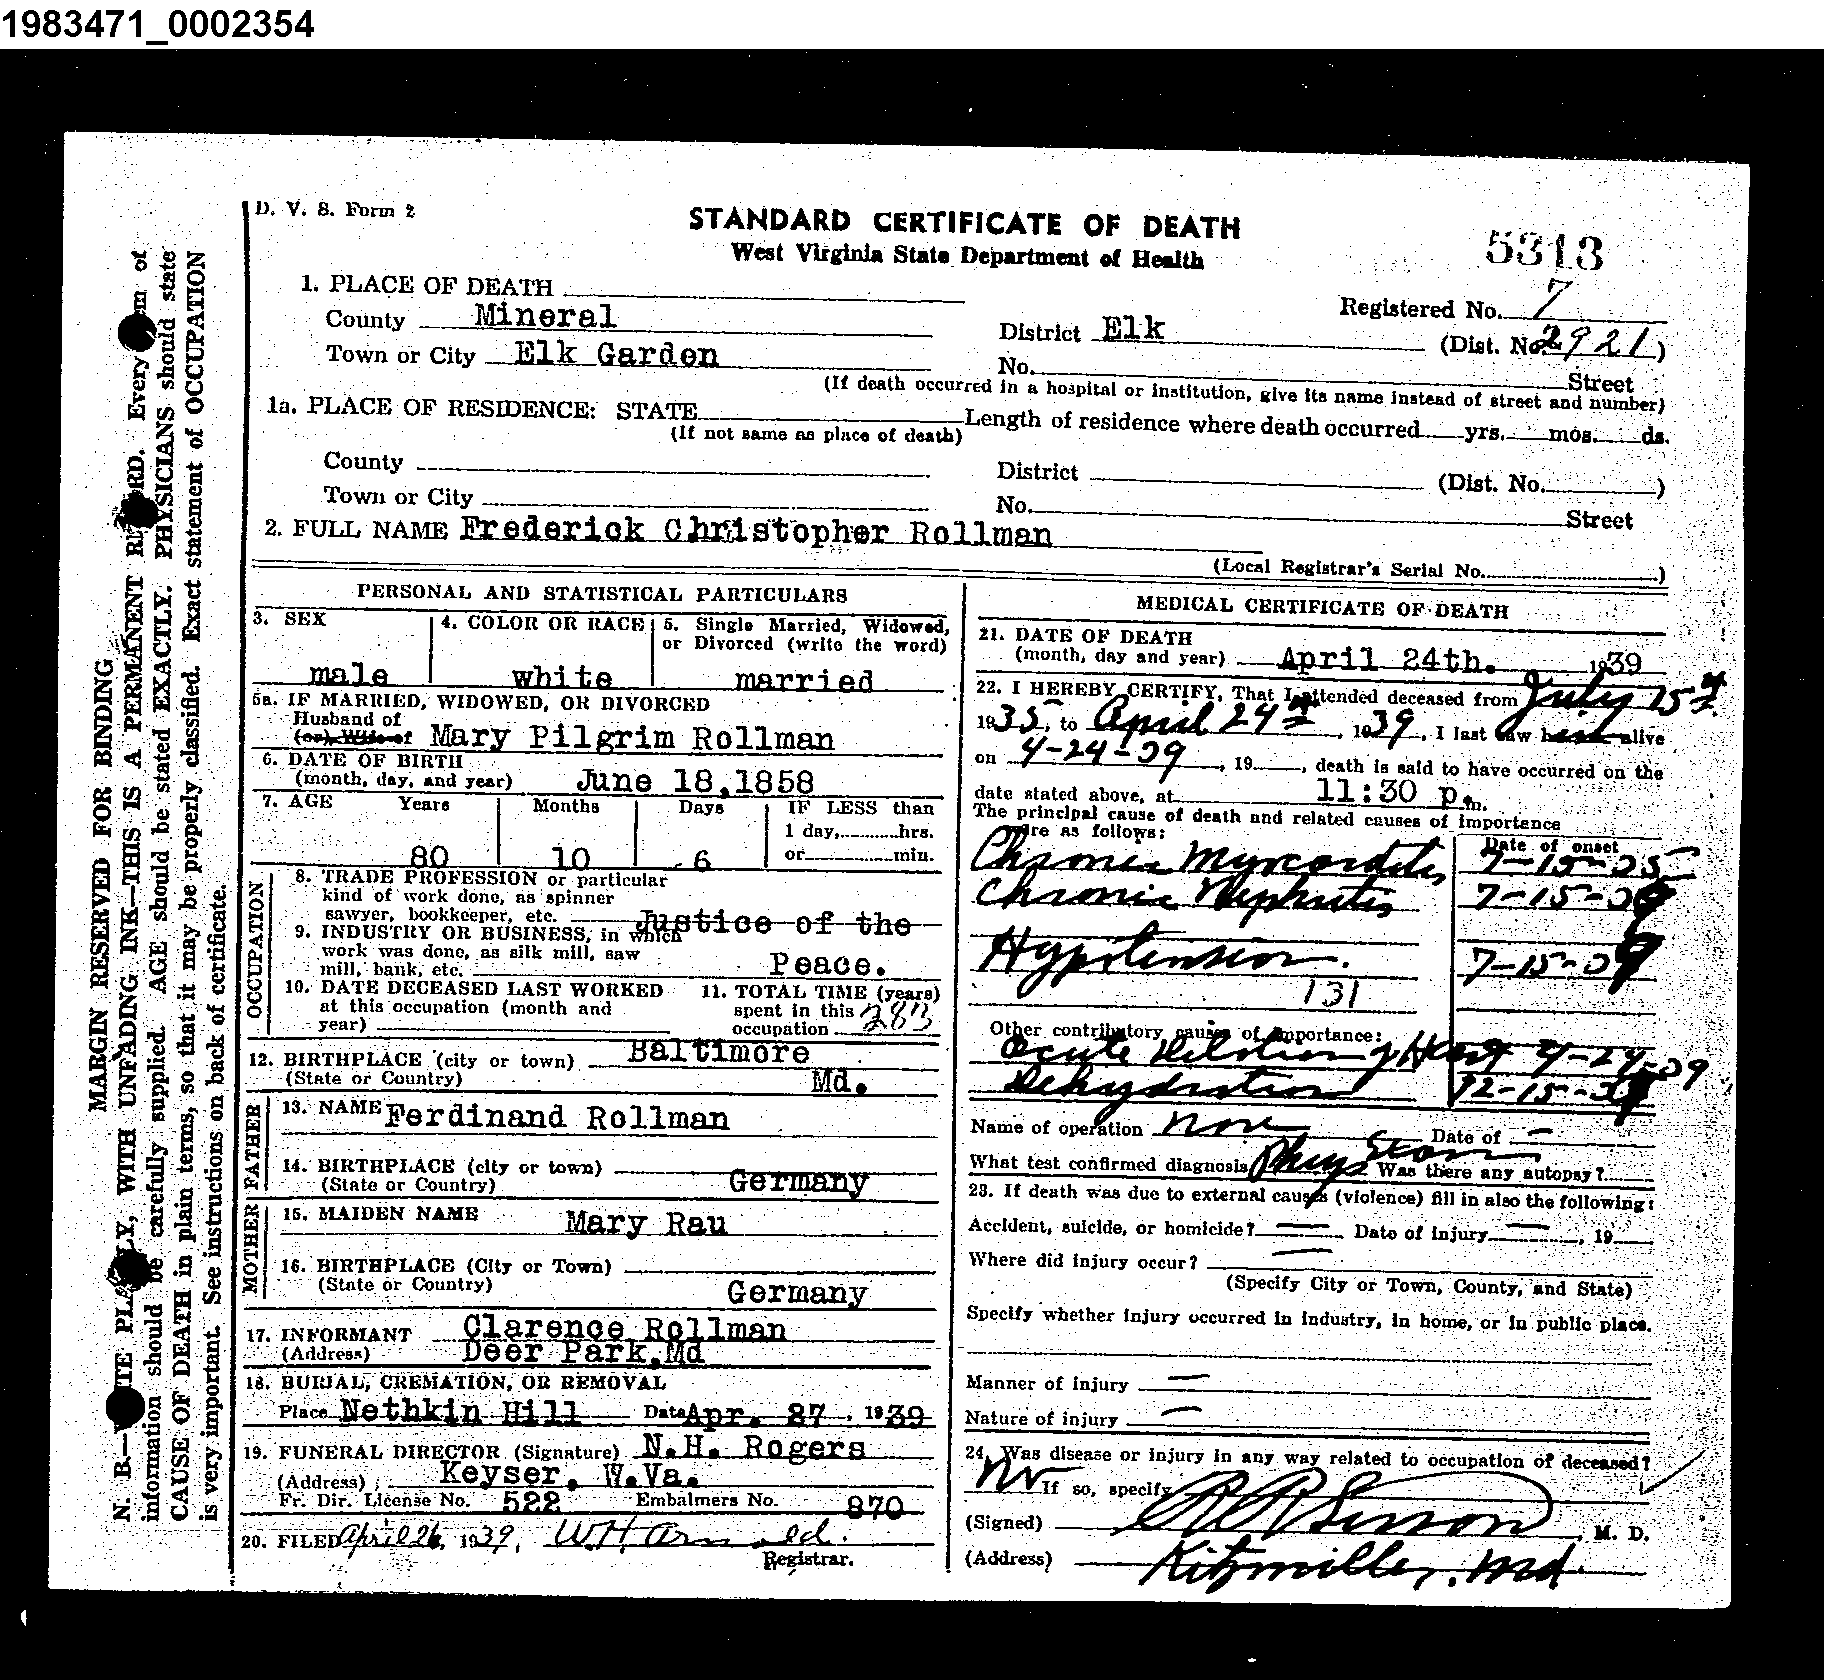 1983471_0002354
D. V. S. Form 2
STANDARD CERTIFICATE OF DEATH
West Virginia State Department of Health
5313
1. PLACE OF DEATH
Registered No. 7
County Mineral District Elk (Dist. No. 2921)
Town or City Elk Garden No. Street
(If death occurred in a hospital or institution, give its name instead of street and number)
1a. PLACE OF RESIDENCE: STATE Length of residence where death occurred yrs. mos. ds.
(If not same as place of death)
County District (Dist. No. )
Town or City No. Street
2. FULL NAME Frederick Christopher Rollman
(Local Registrar's Serial No. )
PERSONAL AND STATISTICAL PARTICULARS
3. SEX male
4. COLOR OR RACE white
5. Single Married, Widowed, or Divorced (write the word) married
5a. IF MARRIED, WIDOWED, OR DIVORCED
Husband of
(or) Wife of Mary Pilgrim Rollman
6. DATE OF BIRTH
(month, day, and year) June 18,1858
7. AGE Years Months Days IF LESS than
1 day, hrs.
80 10 6 or min.
OCCUPATION
8. TRADE PROFESSION or particular
kind of work done, as spinner
sawyer, bookkeeper, etc. Justice of the
9. INDUSTRY OR BUSINESS, in which
work was done, as silk mill, saw
mill, bank, etc. Peace.
10. DATE DECEASED LAST WORKED
at this occupation (month and
year)
11. TOTAL TIME (years)
spent in this
occupation
12. BIRTHPLACE (city or town) Baltimore
(State or Country) Md.
FATHER
13. NAME Ferdinand Rollman
14. BIRTHPLACE (city or town)
(State or Country) Germany
MOTHER
15. MAIDEN NAME Mary Rau
16. BIRTHPLACE (City or Town)
(State or Country) Germany
17. INFORMANT Clarence Rollman
(Address) Deer Park,Md
18. BURIAL, CREMATION, OR REMOVAL
Place Nethkin Hill Date Apr. 27, 1939
19. FUNERAL DIRECTOR (Signature) N.H. Rogers
(Address) Keyser, W.Va.
Fr. Dir. License No. 522 Embalmers No. 870
20. FILED April 26, 1939, W.H. Arnold.
Registrar.
MEDICAL CERTIFICATE OF DEATH
21. DATE OF DEATH
(month, day and year) April 24th. 1939
22. I HEREBY CERTIFY, That I attended deceased from July 15th
1935, to April 24th, 1939, I last saw him alive
on 4-24-39, 19 , death is said to have occurred on the
date stated above, at 11:30 p.m.
The principal cause of death and related causes of importance
are as follows: Date of onset
Chronic Myocarditis 7-15-35
Chronic Nephritis
Hypotension.
131
Other contributory causes of importance:
Acute Dilation of Heart 4-24-39
Dehydration
Name of operation none Date of —
What test confirmed diagnosis Was there any autopsy?
23. If death was due to external causes (violence) fill in also the following:
Accident, suicide, or homicide? — Date of injury — , 19
Where did injury occur? —
(Specify City or Town, County, and State)
Specify whether injury occurred in industry, in home, or in public place.
Manner of injury —
Nature of injury —
24. Was disease or injury in any way related to occupation of deceased?
No If so, specify
(Signed) M. D.
(Address) Kitzmiller, Md.
MARGIN RESERVED FOR BINDING
N. B.—WRITE PLAINLY, WITH UNFADING INK—THIS IS A PERMANENT RECORD. Every item of
information should be carefully supplied. AGE should be stated EXACTLY. PHYSICIANS should state
CAUSE OF DEATH in plain terms, so that it may be properly classified. Exact statement of OCCUPATION
is very important. See instructions on back of certificate.